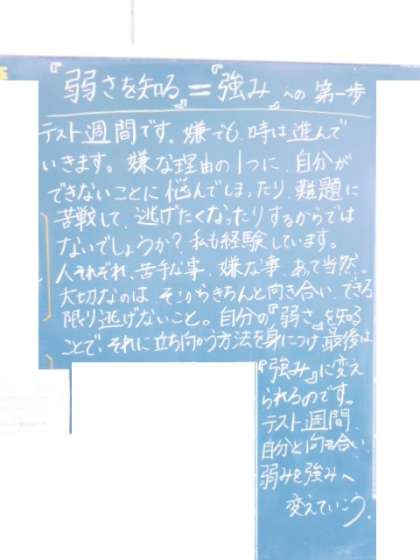 『弱さを知る』＝『強み』への第一歩
テスト週間です。嫌でも、時は進んで
いきます。嫌な理由の1つに、自分が
できないことに悩んでしまったり、難題に
苦戦して、逃げたくなったりするからでは
ないでしょうか？私も経験しています。
人それぞれ、苦手な事、嫌な事、あって当然。
大切なのは、そこからきちんと向き合い、できる
限り逃げないこと。自分の『弱さ』を知る
ことで、それに立ち向かう方法を身につけ、最後は
『強み』に変え
られるのです。
テスト週間、
自分と向き合い、
弱みを強みへ
変えていこう。